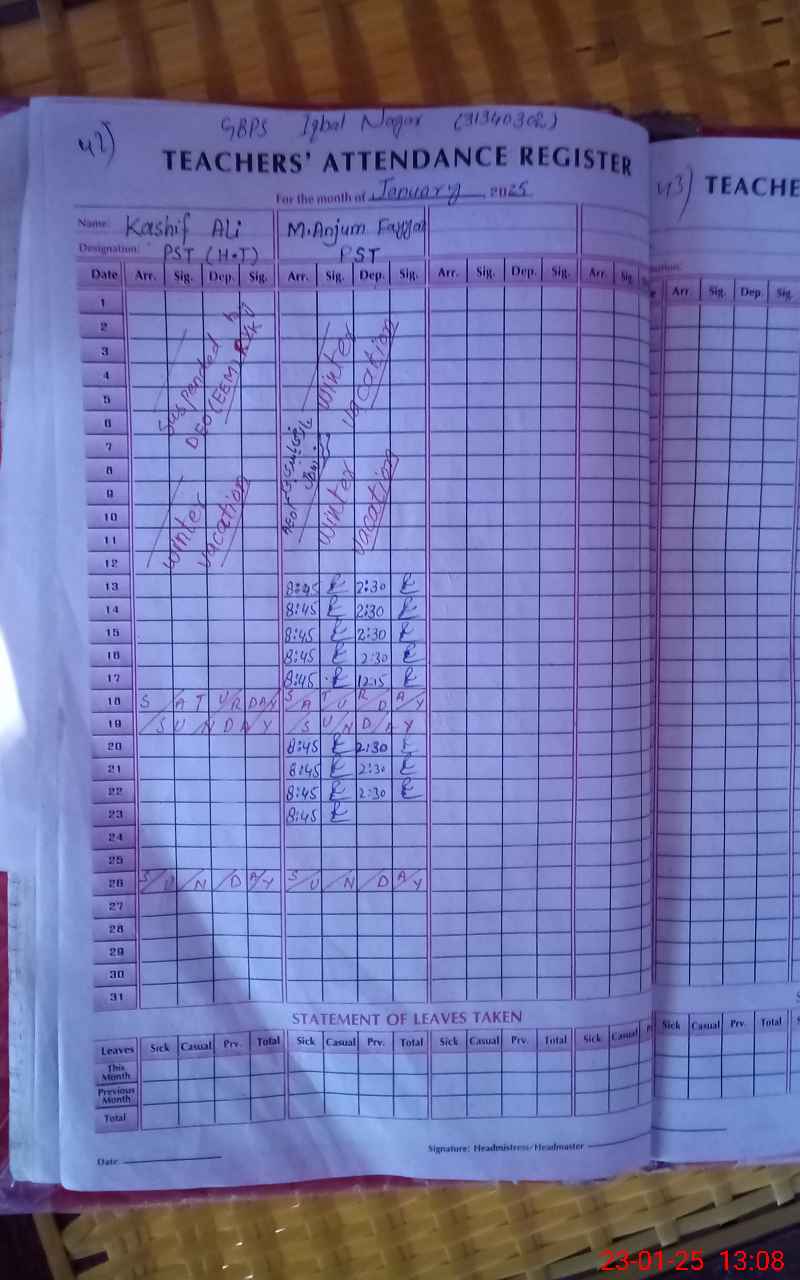 42)
GBPS Iqbal Nagar (31340302)
TEACHERS' ATTENDANCE REGISTER
For the month of January 2025
Name: Kashif Ali M.Anjum
Designation: PST (H.T) PST
Date Arr. Sig. Dep. Sig. Arr. Sig. Dep. Sig. Arr. Sig. Dep. Sig. Arr. Sig.
1
2
3
4
5
6
7
8
9
10
11
12
Suspended by
DEO (EEM) RYK
Winter
vacation
Winter
vacation
Winter
vacation
13 8:45 2:30
14 8:45 2:30
15 8:45 2:30
16 8:45 2:30
17 8:45 12:15
18 SATURDAY SATURDAY
19 SUNDAY SUNDAY
20 8:45 2:30
21 8:45 2:30
22 8:45 2:30
23 8:45
24
25
26 SUNDAY SUNDAY
27
28
29
30
31
STATEMENT OF LEAVES TAKEN
Leaves Sick Casual Prv. Total Sick Casual Prv. Total Sick Casual Prv. Total Sick Casual
This Month
Previous Month
Total
Date
Signature: Headmistress/Headmaster
43) TEACHE
Arr. Sig. Dep. Sig.
Sick Casual Prv. Total
23-01-25 13:08